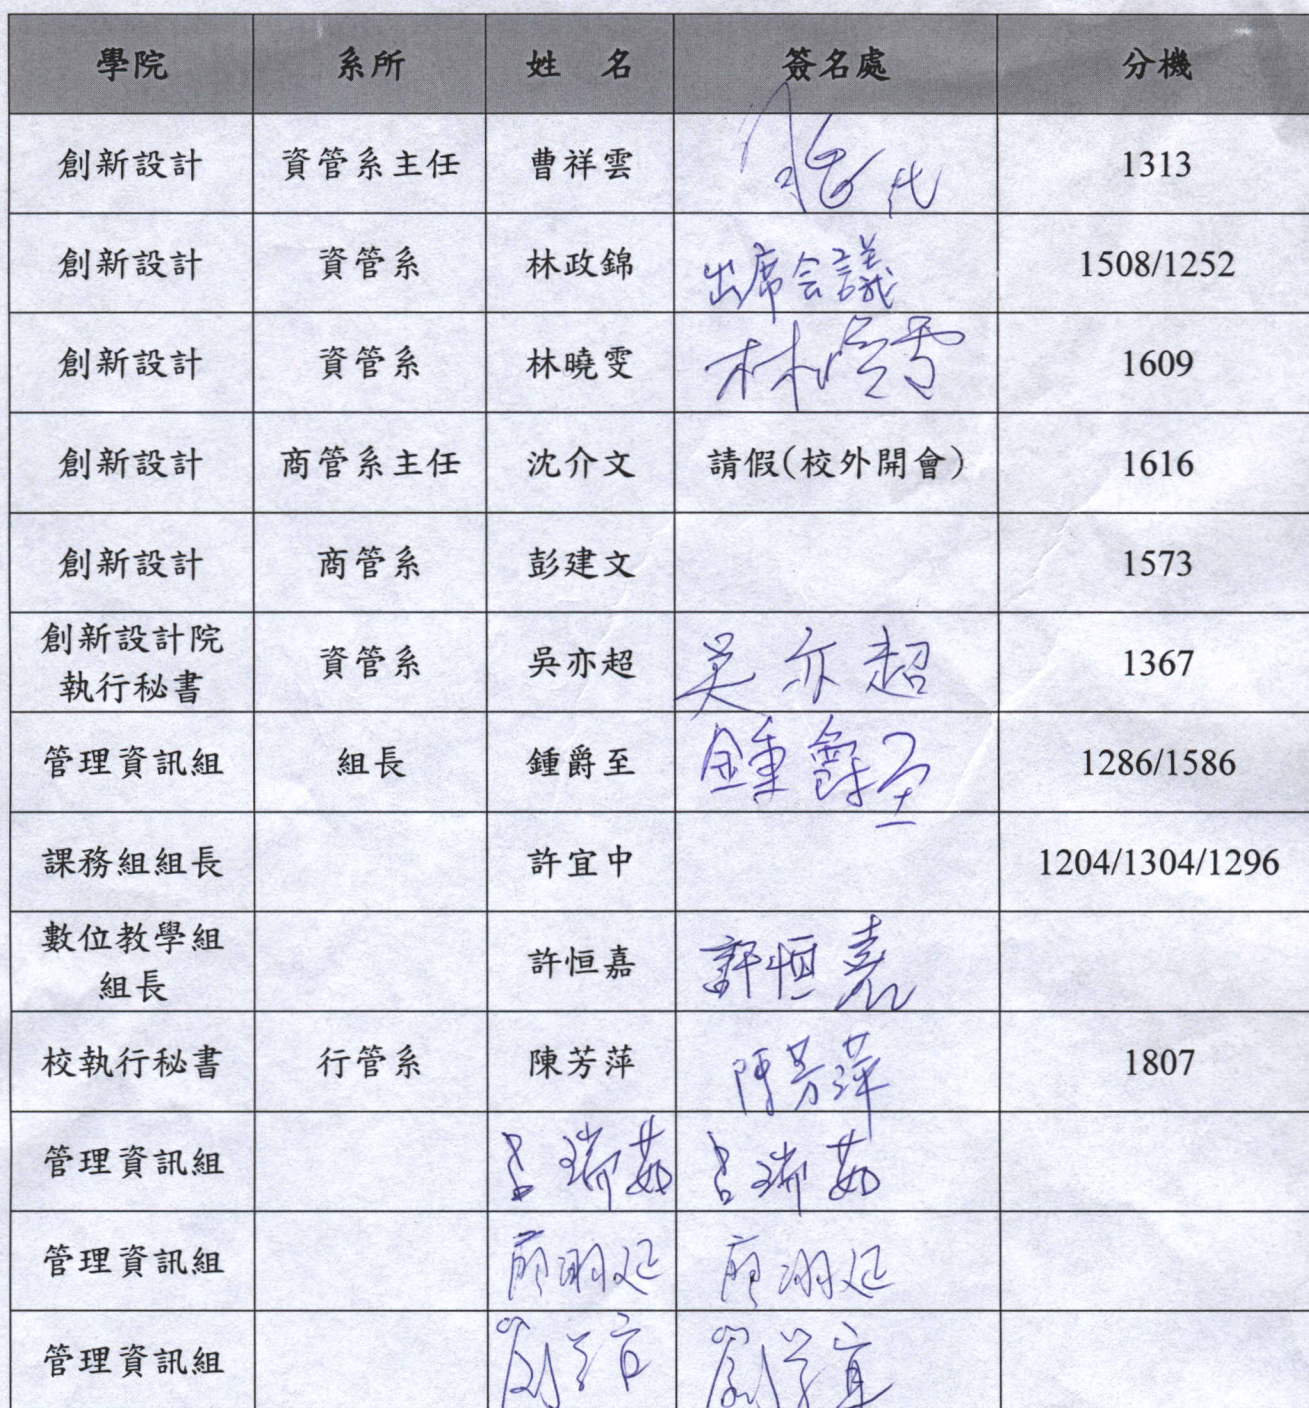 學院 系所 姓 名 簽名處 分機
創新設計 資管系主任 曹祥雲 代 1313
創新設計 資管系 林政錦 出席会議 1508/1252
創新設計 資管系 林曉雯 林曉雯 1609
創新設計 商管系主任 沈介文 請假(校外開會) 1616
創新設計 商管系 彭建文 1573
創新設計院
執行秘書 資管系 吳亦超 吳亦超 1367
管理資訊組 組長 鍾爵至 鍾爵至 1286/1586
課務組組長 許宜中 1204/1304/1296
數位教學組
組長 許恒嘉 許恒嘉
校執行秘書 行管系 陳芳萍 陳芳萍 1807
管理資訊組 呂瑞茹 呂瑞茹
管理資訊組 廖翊廷 廖翊廷
管理資訊組 劉 劉